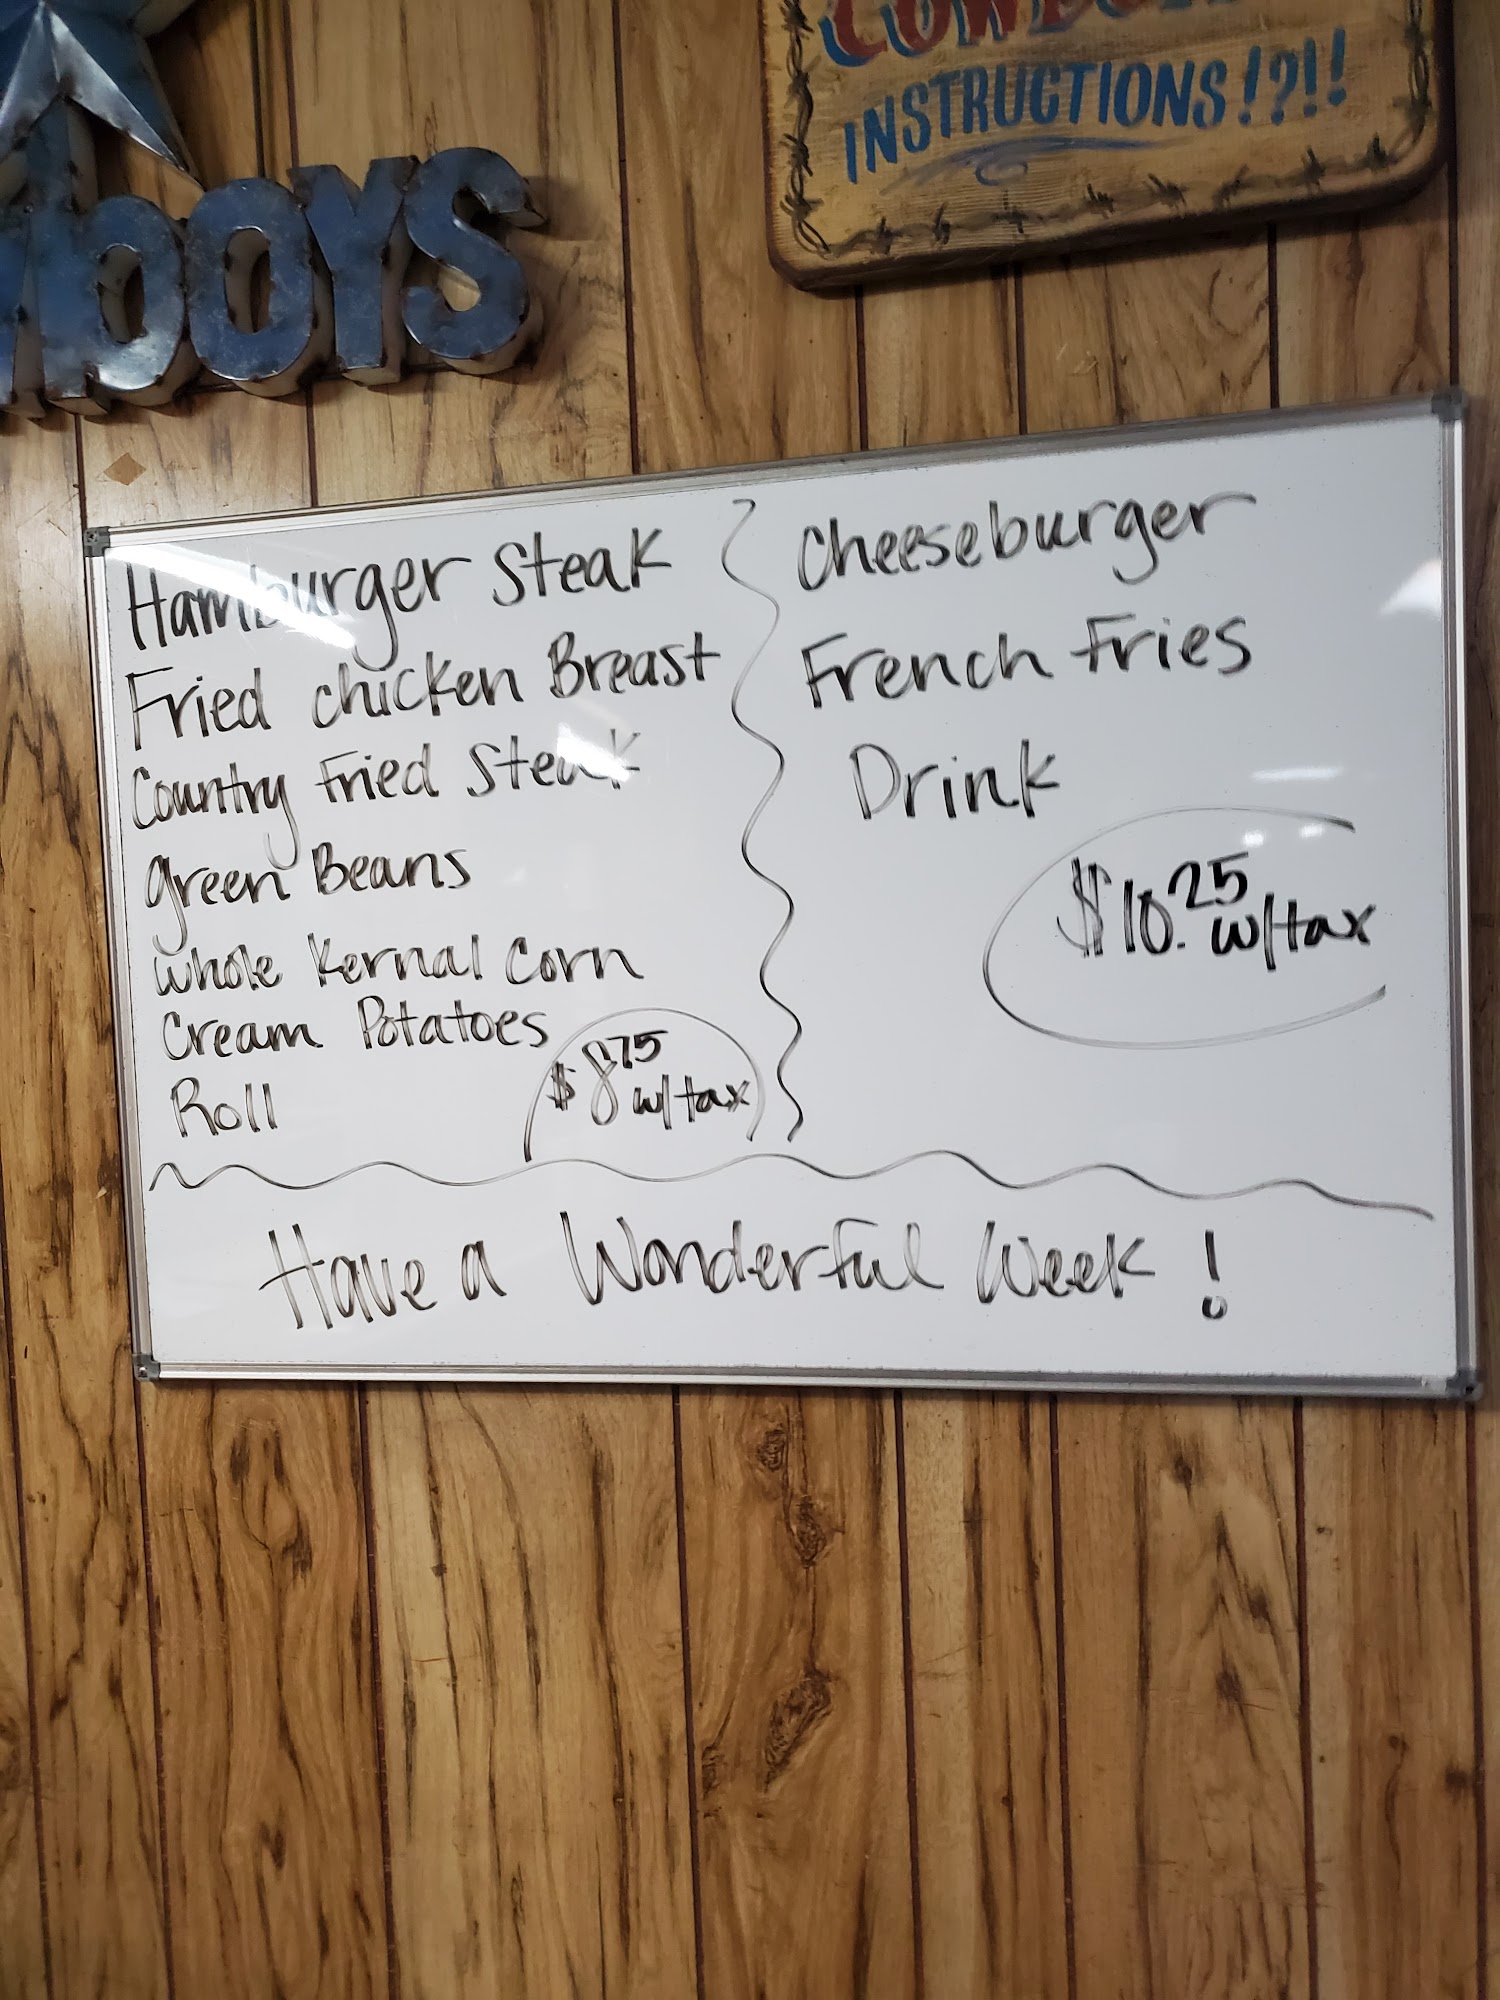 boys
INSTRUCTIONS!?!!
Hamburger Steak
Fried chicken Breast
Country Fried Steak
green Beans
whole Kernal Corn
Cream Potatoes
Roll
$8.75 w/tax
Cheeseburger
French Fries
Drink
$10.25 w/tax
Have a Wonderful Week!